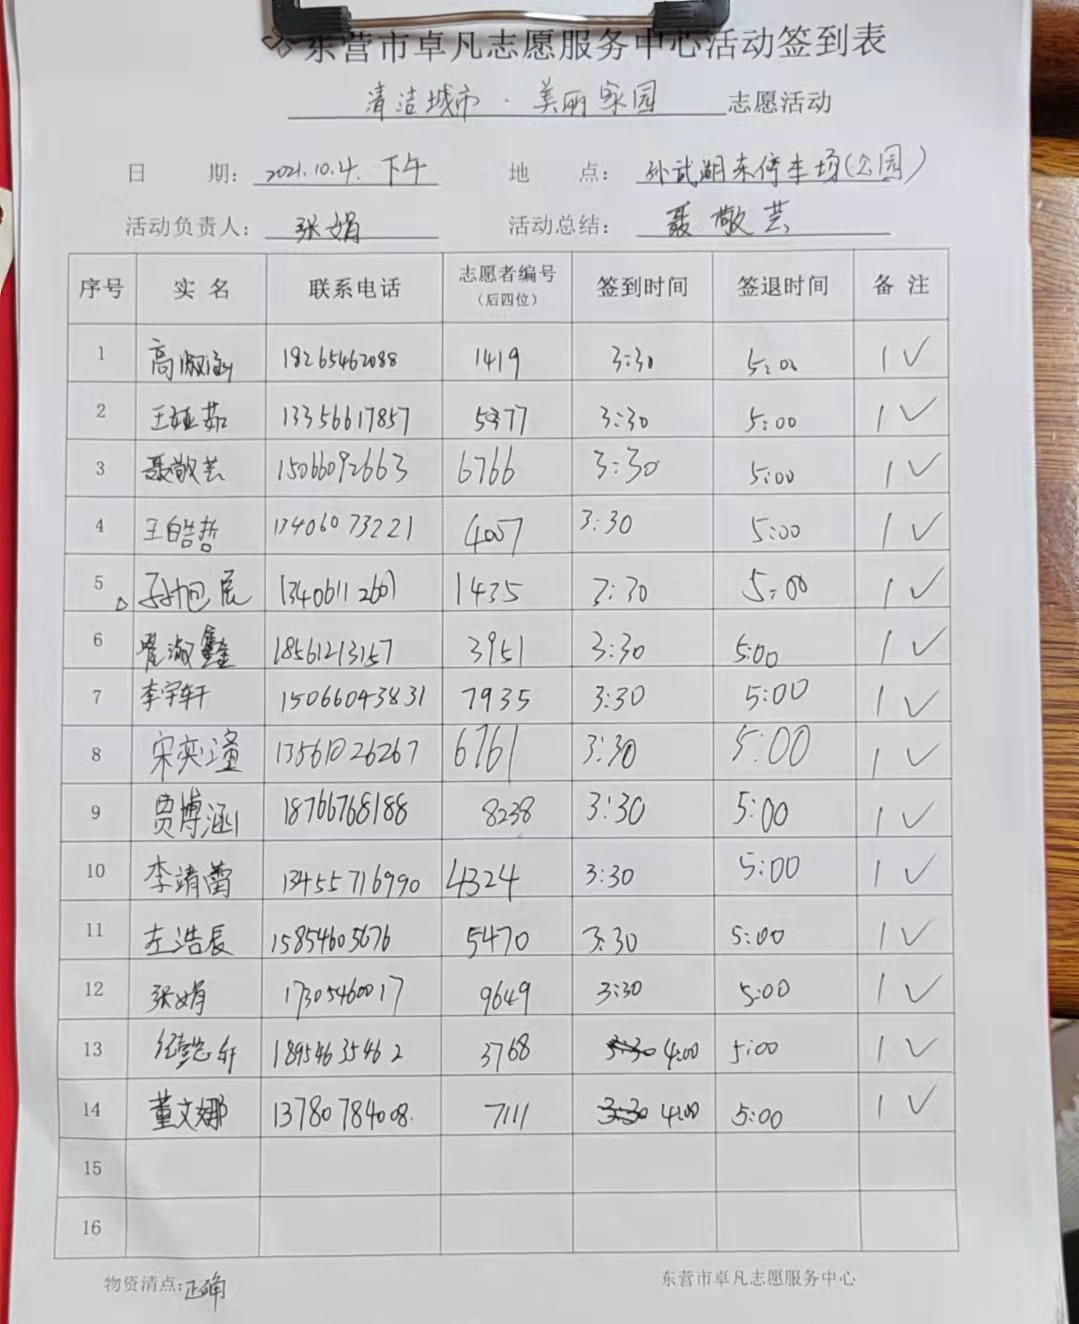 东营市卓凡志愿服务中心活动签到表
清洁城市·美丽家园 志愿活动
日 期: 2021.10.4. 下午 地 点: 孙武湖东停车场(公园)
活动负责人: 张娟 活动总结: 聂敬芸
序号 实 名 联系电话 志愿者编号(后四位) 签到时间 签退时间 备 注
1 高淑涵 18265462088 1419 3:30 5:00 1 ✓
2 王娅茹 13356617857 5377 3:30 5:00 1 ✓
3 聂敬芸 15066092663 6766 3:30 5:00 1 ✓
4 王皓哲 13406073221 4007 3:30 5:00 1 ✓
5 孙旭辰 13406112601 1435 3:30 5:00 1 ✓
6 翟淑鑫 18561213157 3951 3:30 5:00 1 ✓
7 李宇轩 15066043831 7935 3:30 5:00 1 ✓
8 宋奕潼 13561026267 6761 3:30 5:00 1 ✓
9 贾博涵 18766768188 8238 3:30 5:00 1 ✓
10 李靖蕾 13455716990 4324 3:30 5:00 1 ✓
11 左浩辰 15854605676 5470 3:30 5:00 1 ✓
12 张娟 17305460017 9649 3:30 5:00 1 ✓
13 轩 18954635462 3768 3:30 4:00 5:00 1 ✓
14 董文娜 13780784008. 7111 3:30 4:00 5:00 1 ✓
15
16
物资清点: 正确 东营市卓凡志愿服务中心